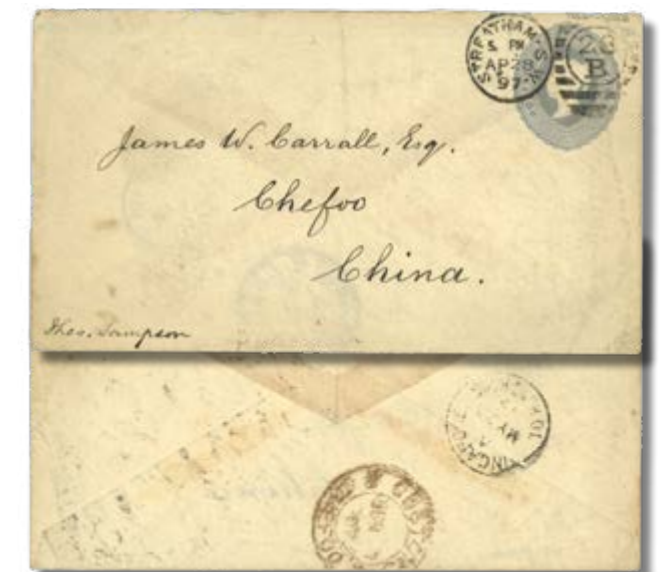 STREATHAM·S.W
5 PM
AP 28
97
B
James W. Carrall, Esq.
Chefoo
China.
Thos. Sampson
SINGAPORE
MY
CUSTOMS